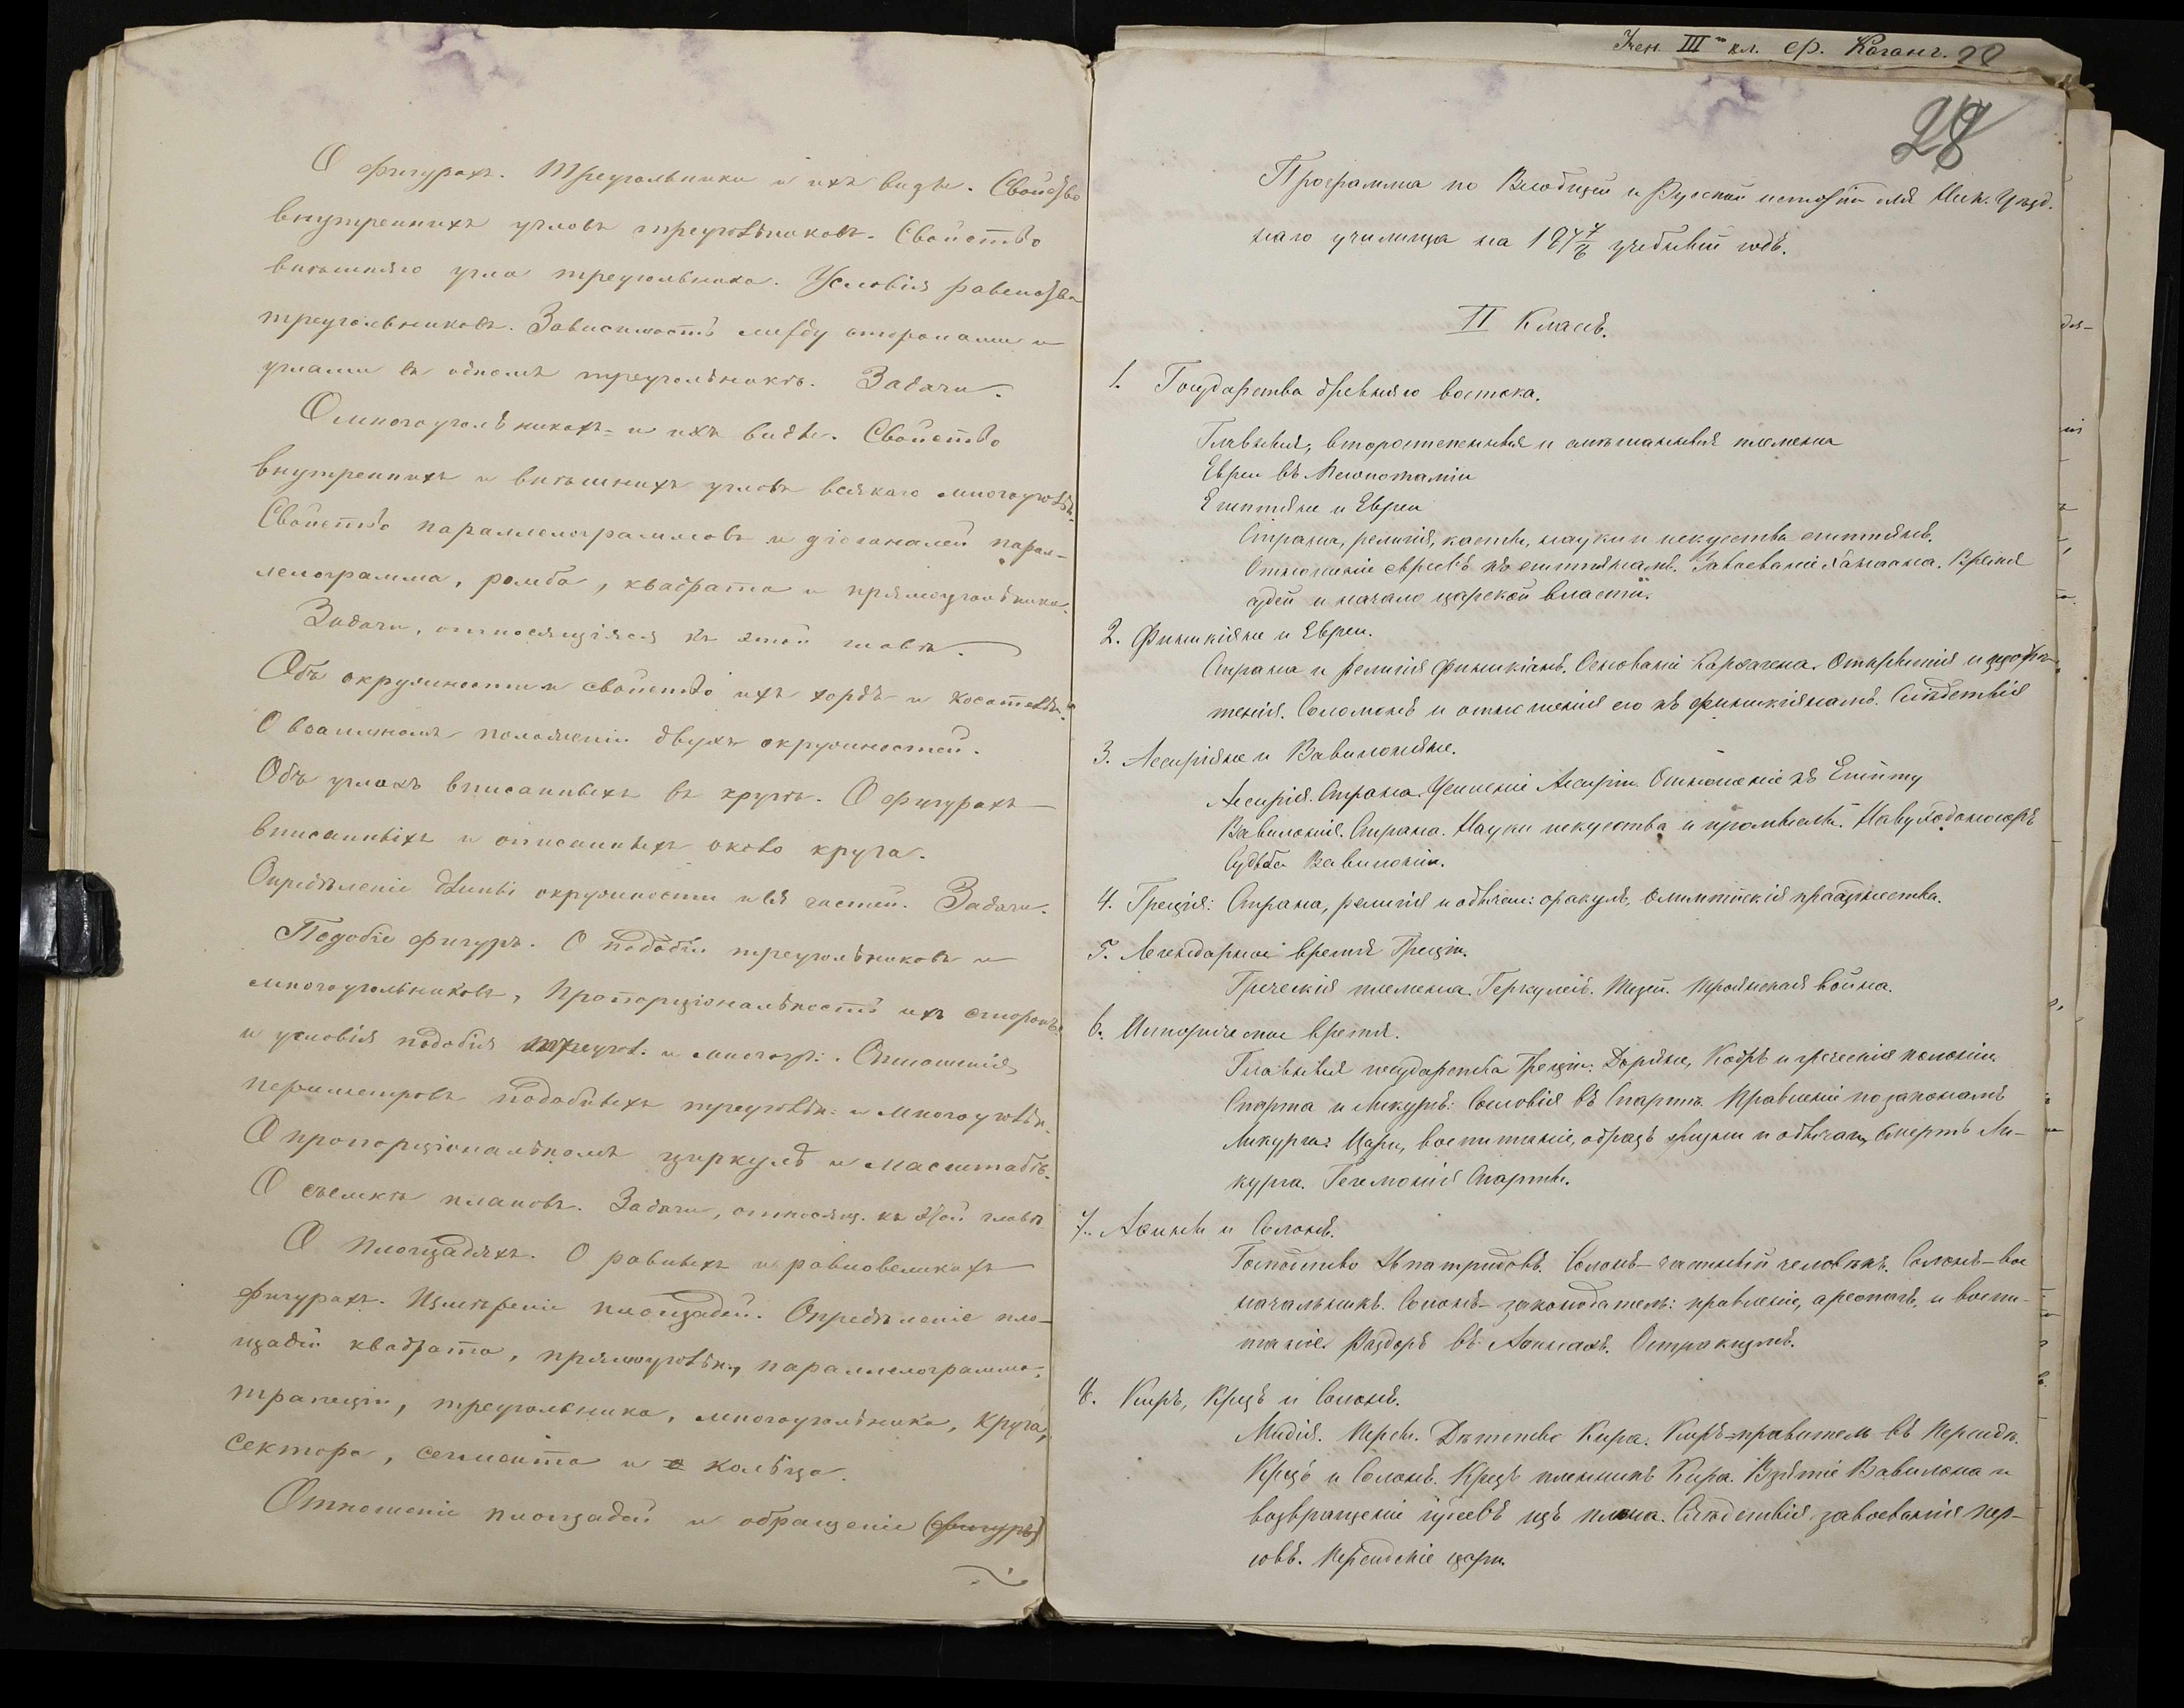 О фигурахъ. Треугольники и ихъ виды. Свойство
внутреннихъ угловъ треугольниковъ. Свойство
внѣшняго угла треугольника. Условія равенства
треугольниковъ. Зависимость между сторонами и
углами въ одномъ треугольникѣ. Задачи.
О многоугольникахъ и ихъ виды. Свойство
внутреннихъ и внѣшнихъ угловъ всякаго многоугольн.
Свойство параллелограммовъ и діагоналей парал-
лелограмма, ромба, квадрата и прямоугольника.
Задачи, относящіяся къ этой главѣ.
Объ окружности и свойство ихъ хордъ и косательн.
О взаимномъ положеніи двухъ окружностей.
Объ углахъ вписанныхъ въ кругъ. О фигурахъ
вписанныхъ и описанныхъ около круга.
Опредѣленіе длины окружности и ея частей. Задачи.
Подобіе фигуръ. О подобіи треугольниковъ и
многоугольниковъ, пропорціональность ихъ сторонъ
и условія подобія треугол. и многоуг. Отношенія
периметровъ подобныхъ треугольн. и многоугольн.
О пропорціональномъ циркулѣ и масштабѣ.
О съемкѣ плановъ. Задачи, относящ. къ этой главѣ
О площадяхъ. О равныхъ и равновеликихъ
фигурахъ. Измѣреніе площадей. Опредѣленіе пло-
щадей квадрата, прямоугольн., параллелограмма,
трапеціи, треугольника, многоугольника, круга,
сектора, сегмента и кольца.
Отношеніе площадей и обращеніе (фигуръ)
III кл. Ф. Коганъ. 28
28
Программа по Всеобщей и Русской исторіи для Ник. Уѣзд.
наго училища на 187 5/6 учебный годъ.
II Классъ.
1. Государства древняго востока.
Главныя, второстепенныя и смѣшанныя племена
Евреи въ Месопотаміи
Египтяне и Евреи
Страна, религія, касты, науки и искуства египтянъ.
Отношеніе евреевъ къ египтянамъ. Завоеваніе Ханаана. Время
судей и начало царской власти.
2. Финикіяне и Евреи.
Страна и религія финикіянъ. Основаніе Карѳагена. Открытія и изобрѣ-
тенія. Соломонъ и отношенія его къ финикіянамъ. Слѣдствія
3. Ассиріяне и Вавилоняне.
Ассирія. Страна. Усиленіе Ассиріи. Отношеніе къ Египту
Вавилонія. Страна. Науки искуства и промыслы. Навуходоносоръ
Судьба Вавилоніи.
4. Греція: Страна, религія и обычаи: оракулъ, олимпійскія празднества.
5. Легендарное время Греціи.
Греческія племена. Геркулесъ. Тезей. Троянская война.
6. Историческое время.
Главныя государства Греціи: Доряне, Кодръ и греческія колоніи
Спарта и Ликургъ: Сословія въ Спартѣ. Правленіе по законамъ
Ликурга: Цари, воспитаніе, образъ жизни и обычаи, Смерть Ли-
курга. Гегемонія Спарты.
7. Аѳины и Солонъ.
Господство Эвпатридовъ. Солонъ – частный человѣкъ. Солонъ – вое
начальникъ. Солонъ – законодатель: правленіе, ареопагъ, и воспи-
таніе. Раздоръ въ Аѳинахъ. Остракизмъ.
8. Киръ, Крезъ и Солонъ.
Мидія. Персы. Дѣтство Кира. Киръ – правитель въ Персидѣ.
Крезъ и Солонъ. Крезъ плѣнникъ Кира. Взятіе Вавилона и
возвращеніе іудеевъ изъ плѣна. Слѣдствія завоеванія пер-
совъ. Персидскіе цари.